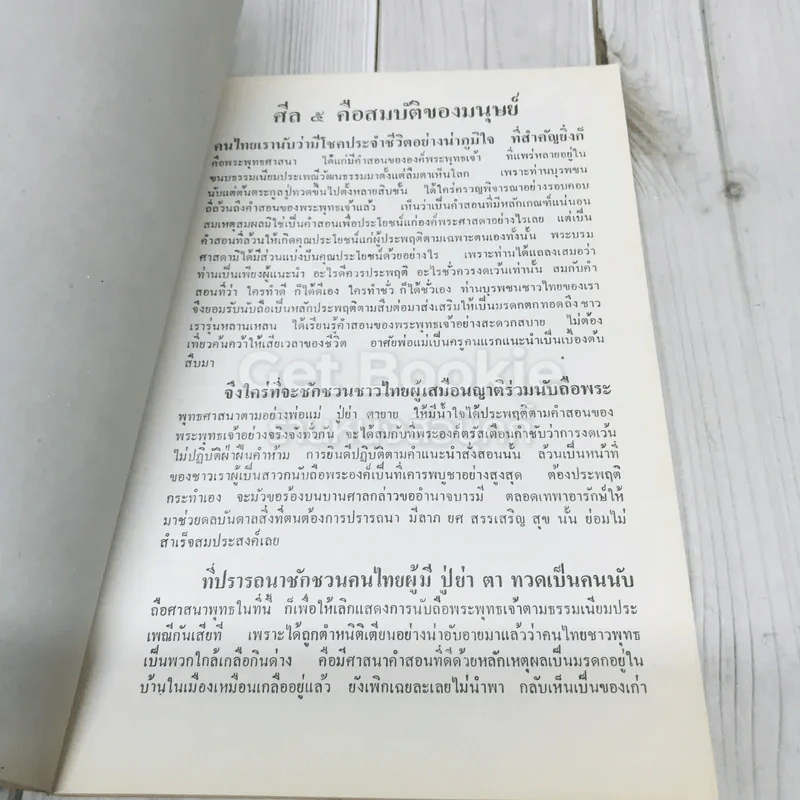 ศีล ๕ คือสมบัติของมนุษย์
คนไทยเรานับว่ามีโชคประจำชีวิตอย่างน่าภูมิใจ ที่สำคัญยิ่งก็
คือพระพุทธศาสนา ได้แก่มีคำสอนขององค์พระพุทธเจ้า ที่แพร่หลายอยู่ใน
ขนบธรรมเนียมประเพณีวัฒนธรรมมาตั้งแต่ลืมตาเห็นโลก เพราะท่านบุรพชน
นับแต่ต้นตระกูลปู่ทวดขึ้นไปตั้งหลายสิบชั้น ได้ใคร่ครวญพิจารณาอย่างรอบคอบ
ถี่ถ้วนถึงคำสอนของพระพุทธเจ้าแล้ว เห็นว่าเป็นคำสอนที่มีหลักเกณฑ์แน่นอน
สมเหตุสมผลมิใช่เป็นคำสอนเพื่อประโยชน์แก่องค์พระศาสดาอย่างไรเลย แต่เป็น
คำสอนที่ล้วนให้เกิดคุณประโยชน์แก่ผู้ประพฤติตามเฉพาะตนเองทั้งนั้น พระบรม
ศาสดามิได้มีส่วนแบ่งปันคุณประโยชน์ด้วยอย่างไร เพราะท่านได้แถลงเสมอว่า
ท่านเป็นเพียงผู้แนะนำ อะไรดีควรประพฤติ อะไรชั่วควรงดเว้นเท่านั้น สมกับคำ
สอนที่ว่า ใครทำดี ก็ได้ดีเอง ใครทำชั่ว ก็ได้ชั่วเอง ท่านบุรพชนชาวไทยของเรา
จึงยอมรับนับถือเป็นหลักประพฤติตามสืบต่อมาส่งเสริมให้เป็นมรดกตกทอดถึง ชาว
เรารุ่นหลานเหลน ได้เรียนรู้คำสอนของพระพุทธเจ้าอย่างสะดวกสบาย ไม่ต้อง
เที่ยวค้นคว้าให้เสียเวลาของชีวิต อาศัยพ่อแม่เป็นครูคนแรกแนะนำเป็นเบื้องต้น
สืบมา
จึงใคร่ที่จะชักชวนชาวไทยผู้เสมือนญาติร่วมนับถือพระ
พุทธศาสนาตามอย่างพ่อแม่ ปู่ย่า ตายาย ให้มีน้ำใจได้ประพฤติตามคำสอนของ
พระพุทธเจ้าอย่างจริงจังทั่วกัน จะได้สมกับที่พระองค์ตรัสเตือนกำชับว่าการงดเว้น
ไม่ปฏิบัติฝ่าฝืนคำห้าม การยินดีปฏิบัติตามคำแนะนำสั่งสอนนั้น ล้วนเป็นหน้าที่
ของชาวเราผู้เป็นสาวกนับถือพระองค์เป็นที่เคารพบูชาอย่างสูงสุด ต้องประพฤติ
กระทำเอง จะมัวขอร้องบนบานศาลกล่าวขออำนาจบารมี ตลอดเทพาอารักษ์ให้
มาช่วยดลบันดาลสิ่งที่ตนต้องการปรารถนา มีลาภ ยศ สรรเสริญ สุข นั้น ย่อมไม่
สำเร็จสมประสงค์เลย
ที่ปรารถนาชักชวนคนไทยผู้มี ปู่ย่า ตา ทวดเป็นคนนับ
ถือศาสนาพุทธในที่นี้ ก็เพื่อให้เลิกแสดงการนับถือพระพุทธเจ้าตามธรรมเนียมประ
เพณีกันเสียที เพราะได้ถูกตำหนิติเตียนอย่างน่าอับอายมาแล้วว่าคนไทยชาวพุทธ
เป็นพวกใกล้เกลือกินด่าง คือมีศาสนาคำสอนที่ดีด้วยหลักเหตุผลเป็นมรดกอยู่ใน
บ้านในเมืองเหมือนเกลืออยู่แล้ว ยังเพิกเฉยละเลยไม่นำพา กลับเห็นเป็นของเก่า
Get Bookie